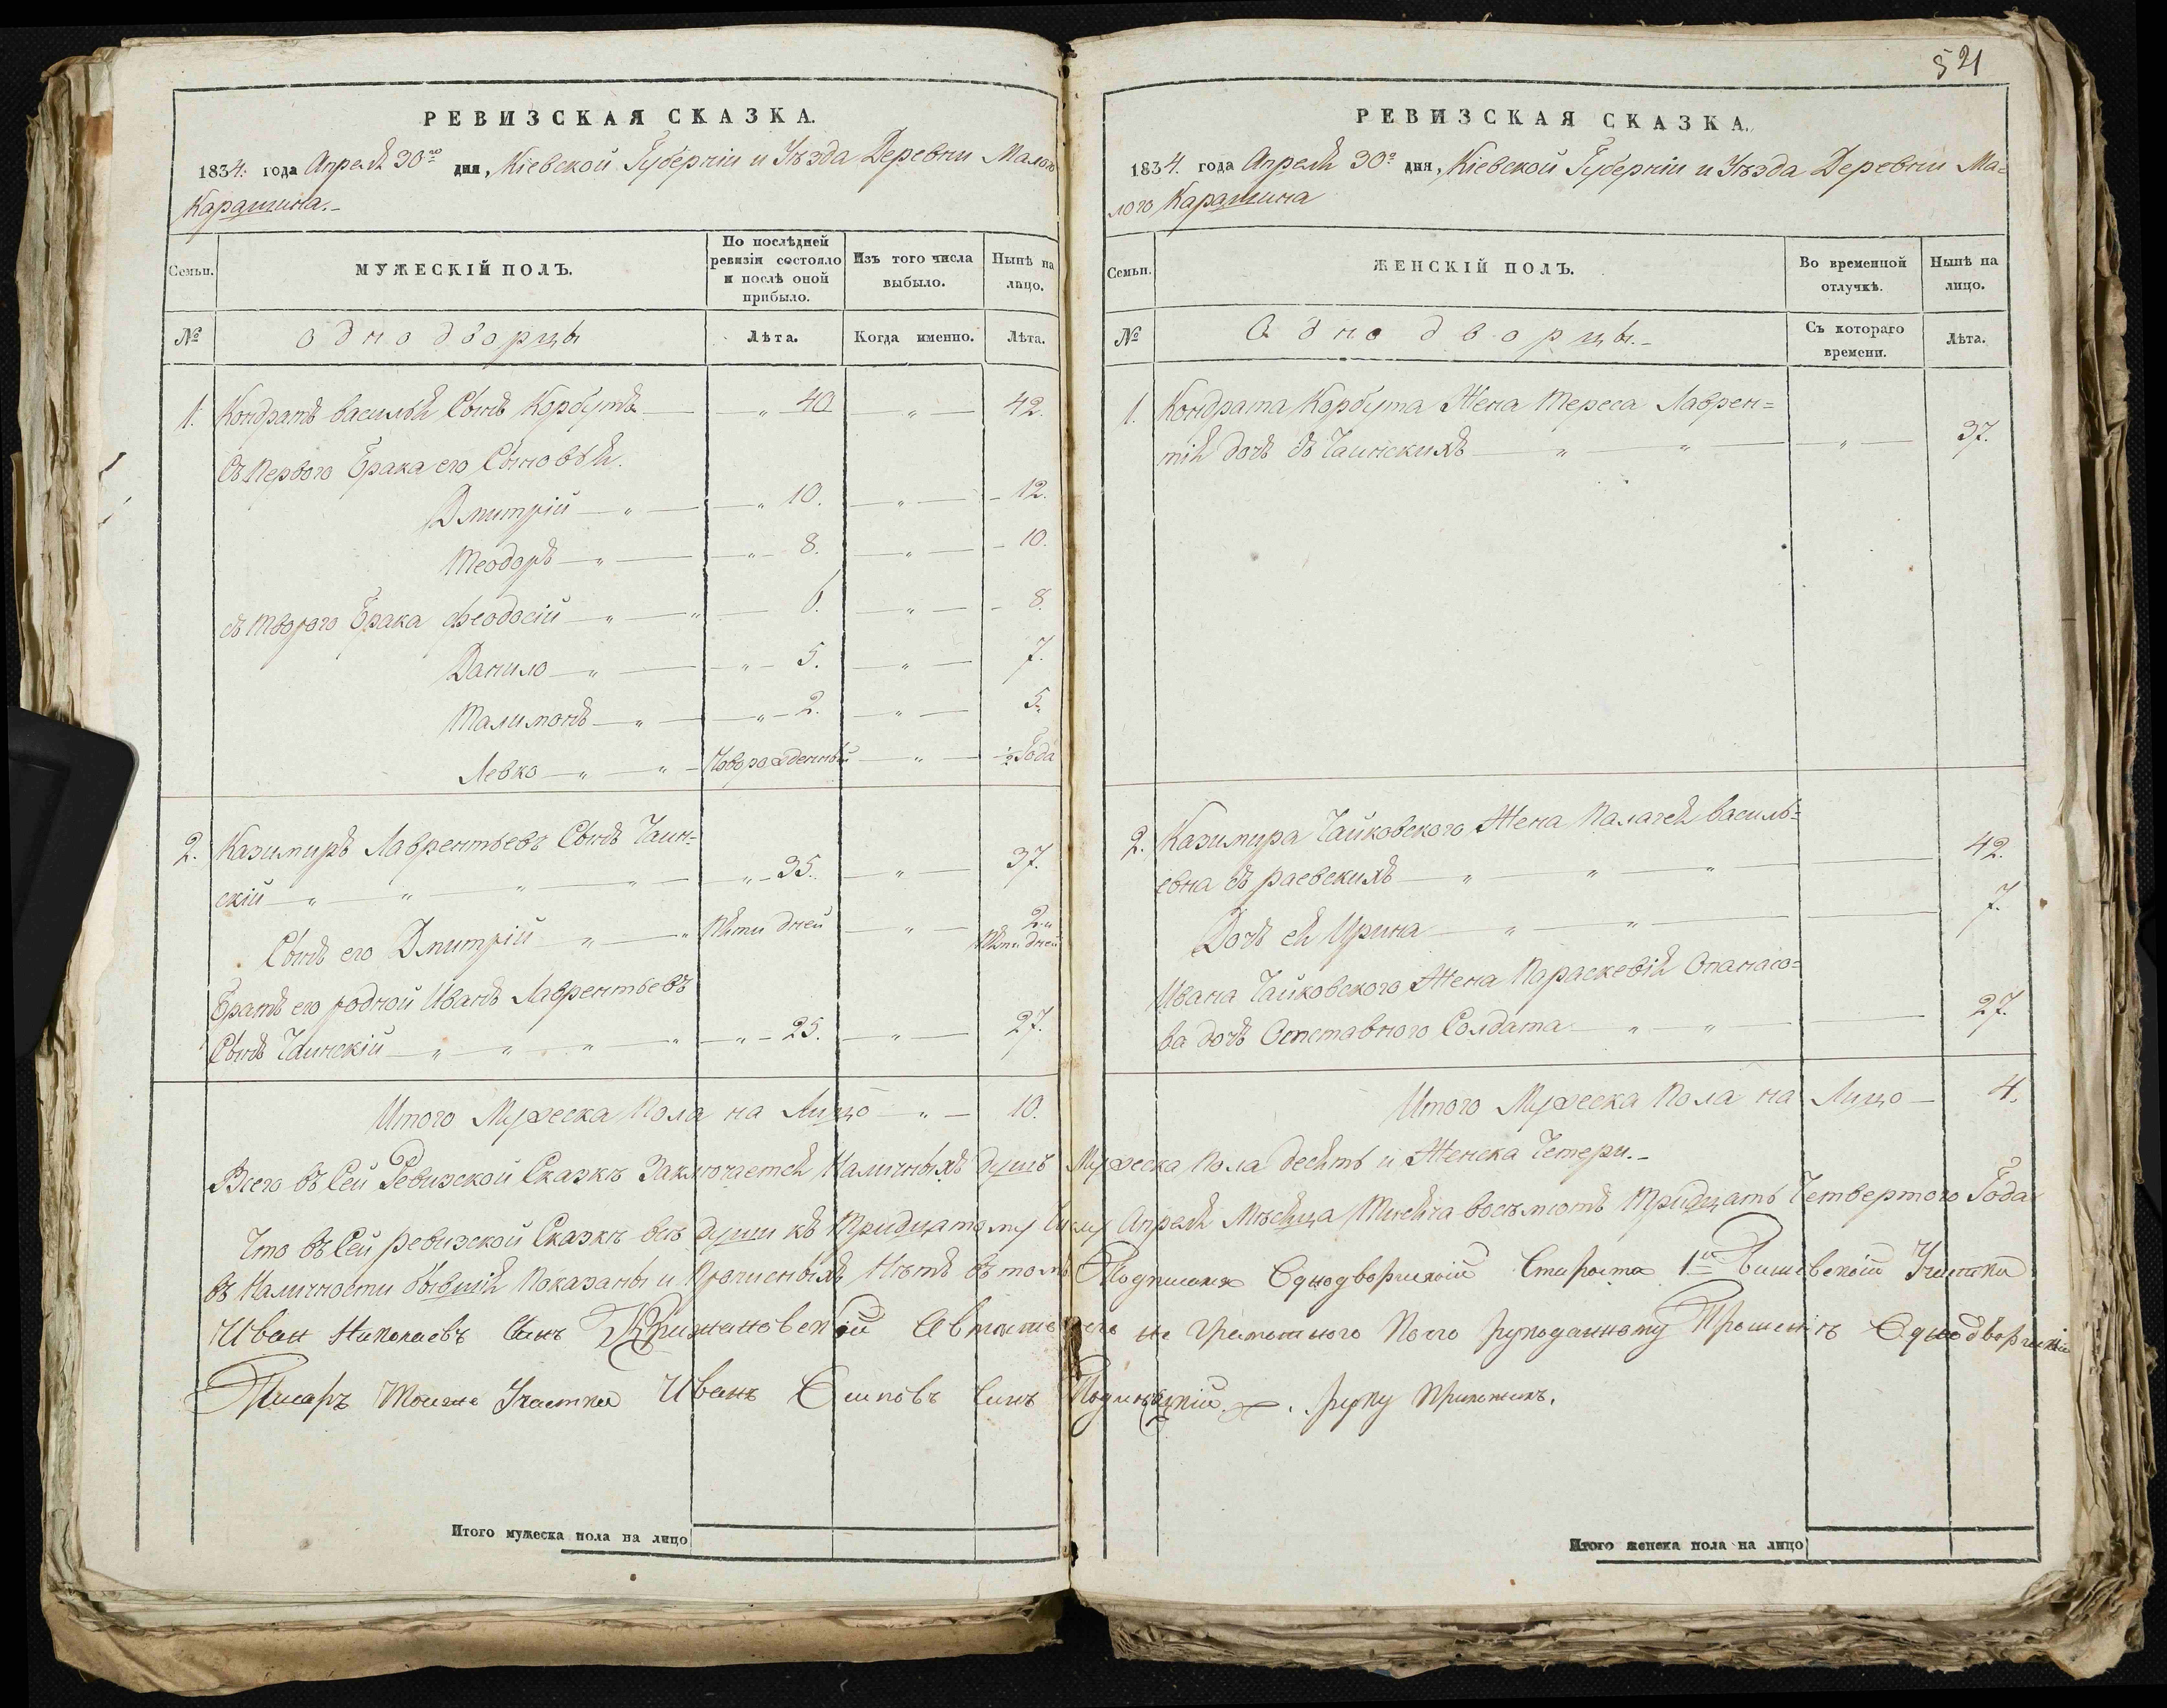 РЕВИЗСКАЯ СКАЗКА.
1834. года Апреля 30го дня, Кіевской Губерніи и Уѣзда Деревни Малого
Карашина.
Семьи.
МУЖЕСКІЙ ПОЛЪ.
По послѣдней ревизіи состояло и послѣ оной прибыло.
Изъ того числа выбыло.
Нынѣ на лицо.
№
однодворцы
Лѣта.
Когда именно.
Лѣта.
1. Кондратъ васильи Сынъ Корбутъ 40 42.
Съ Первого Брака его Сыновья.
Дмитрій 10. 12.
Теодоръ 8. 10.
съ Творого Брака Феодосій 6. 8.
Данило 5. 7.
Талимонъ 2. 5.
Левко Новорожденный ½ Года
2. Казимиръ Лаврентьевъ Сынъ Чаин=
скій 35. 37.
Сынъ его Дмитрій Пяти дней 2. Пяти дней
Братъ его родной Иванъ Лаврентьевъ
Сынъ Чаинскій 25. 27.
Итого Мужеска Пола на Лицо 10.
РЕВИЗСКАЯ СКАЗКА.
521
1834. года Апреля 30о дня, Кіевской Губерніи и Уѣзда Деревни Ма=
лого Карашина
Семьи.
ЖЕНСКІЙ ПОЛЪ.
Во временной отлучкѣ.
Нынѣ на лицо.
№
Однодворцы.
Съ котораго времени.
Лѣта.
1. Кондрата Корбута Жена Тереса Лаврен=
тія дочъ съ Чаинскихъ 37.
2. Казимира Чайковского Жена Палагея василь=
евна съ раевскихъ 42.
Дочъ ея Ирина 7.
Ивана Чайковского Жена Параскевія Опанасо=
ва дочъ Отставного Солдата 27.
Итого Мужеска Пола на Лицо 4.
Всего въ Сей Ревизской Сказкѣ Заключается Наличныхъ душъ Мужеска Пола десять и Женска Четери.
Что въ Сей ревизской Сказкѣ всѣ души къ Тридцатому Числу Апреля Мѣсяца Тисяча восемъсотъ Тридцать Четвертого Года
въ Наличности бывшія Показаны и Прописныхъ Нѣтъ въ томъ Подписался Однодворческій Староста 1го Участка
Иван Николаевъ Сынъ Крижановскій не Грамотного По его рукоданному Прошенію Однодворческій
Писаръ Тогоже Участка Иванъ Осиповъ Сынъ руку Приложилъ.
Итого мужеска пола на лицо
Итого женска пола на лицо